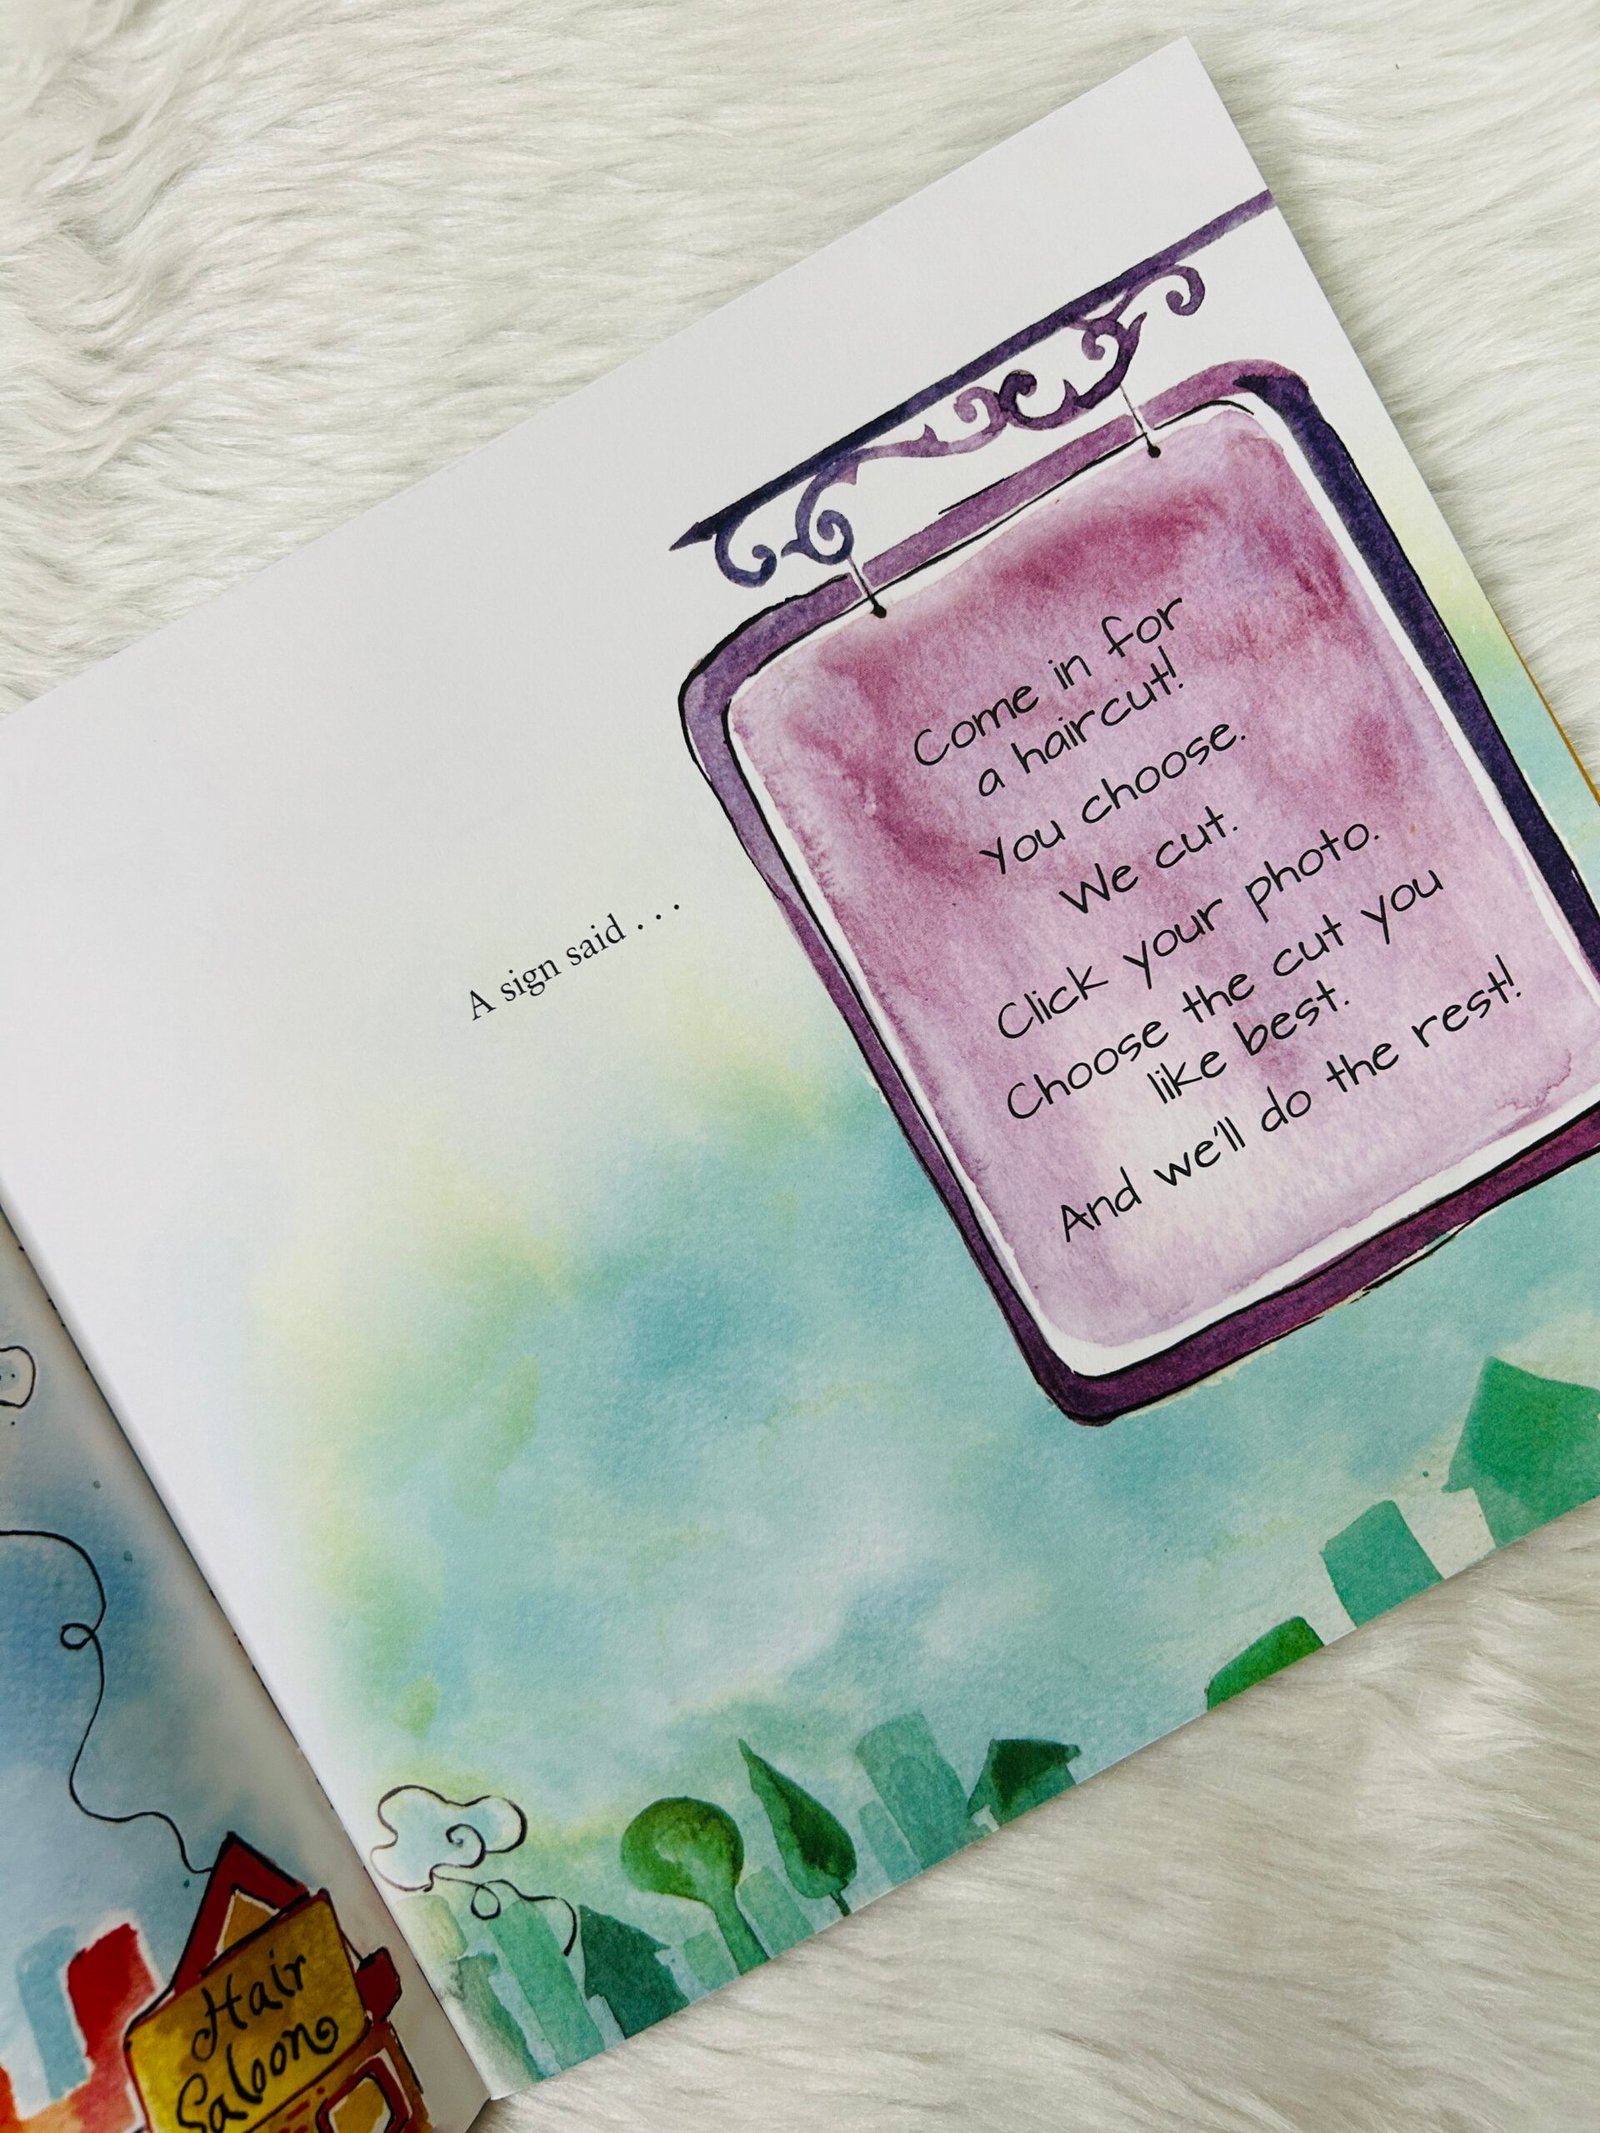 A sign said . . .
Come in for
a haircut!
You choose.
We cut.
Click your photo.
Choose the cut you
like best.
And we'll do the rest!
Hair
Saloon